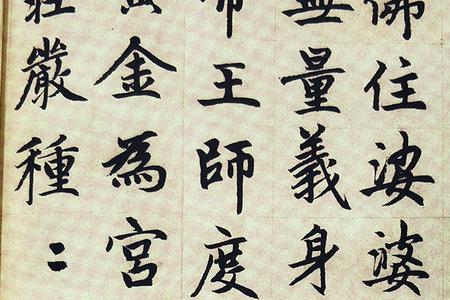 佛住娑婆
無量義身
帝王師度
黃金為宮
莊嚴種〻